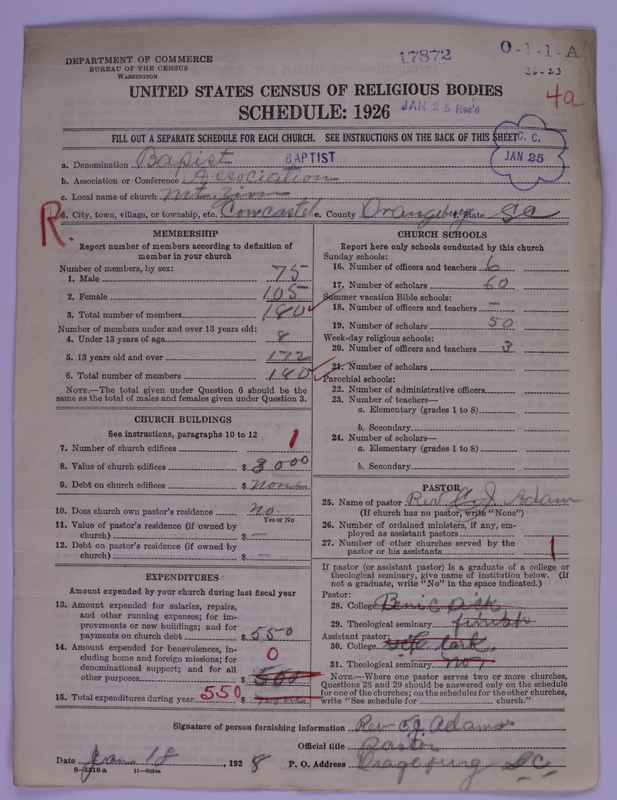 DEPARTMENT OF COMMERCE
BUREAU OF THE CENSUS
WASHINGTON
17872
O-1-1-A
36-23
4a
UNITED STATES CENSUS OF RELIGIOUS BODIES
SCHEDULE: 1926
JAN 25 Rec'd
FILL OUT A SEPARATE SCHEDULE FOR EACH CHURCH. SEE INSTRUCTIONS ON THE BACK OF THIS SHEET
C. C.
JAN 25
a. Denomination Bapist BAPTIST
b. Association or Conference Association
c. Local name of church Mt. Zion
R.
d. City, town, village, or township, etc. Cowcastel e. County Orangeburg f. State
MEMBERSHIP
Report number of members according to definition of
member in your church
Number of members, by sex:
1. Male 75
2. Female 105
3. Total number of members 180
Number of members under and over 13 years old:
4. Under 13 years of age 8
5. 13 years old and over 172
6. Total number of members 180
NOTE.—The total given under Question 6 should be the
same as the total of males and females given under Question 3.
CHURCH BUILDINGS
See instructions, paragraphs 10 to 12
7. Number of church edifices 1
8. Value of church edifices $ 3000
9. Debt on church edifices $ None
10. Does church own pastor's residence? no
Yes or No
11. Value of pastor's residence (if owned by
church) $ —
12. Debt on pastor's residence (if owned by
church) $ —
EXPENDITURES
Amount expended by your church during last fiscal year
13. Amount expended for salaries, repairs,
and other running expenses; for im-
provements or new buildings; and for
payments on church debt $ 550
14. Amount expended for benevolences, in-
cluding home and foreign missions; for
denominational support; and for all
other purposes $ 0
15. Total expenditures during year 550 $
CHURCH SCHOOLS
Report here only schools conducted by this church
Sunday schools:
16. Number of officers and teachers 6
17. Number of scholars 60
Summer vacation Bible schools:
18. Number of officers and teachers —
19. Number of scholars 50
Week-day religious schools:
20. Number of officers and teachers 3
21. Number of scholars
Parochial schools:
22. Number of administrative officers
23. Number of teachers—
a. Elementary (grades 1 to 8)
b. Secondary
24. Number of scholars—
a. Elementary (grades 1 to 8)
b. Secondary
PASTOR
25. Name of pastor Rev C. J. Adam
(If church has no pastor, write "None")
26. Number of ordained ministers, if any, em-
ployed as assistant pastors
27. Number of other churches served by the
pastor or his assistants 1
If pastor (or assistant pastor) is a graduate of a college or
theological seminary, give name of institution below. (If
not a graduate, write "No" in the space indicated.)
Pastor:
28. College
29. Theological seminary finish
Assistant pastor:
30. College
31. Theological seminary
NOTE.—Where one pastor serves two or more churches,
Questions 28 and 29 should be answered only on the schedule
for one of the churches; on the schedules for the other churches,
write "See schedule for church."
Signature of person furnishing information Rev C J Adams
Official title Pastor
Date Jan 18, 1928 P. O. Address Orageburg SC
8—5518 a 11—9034a